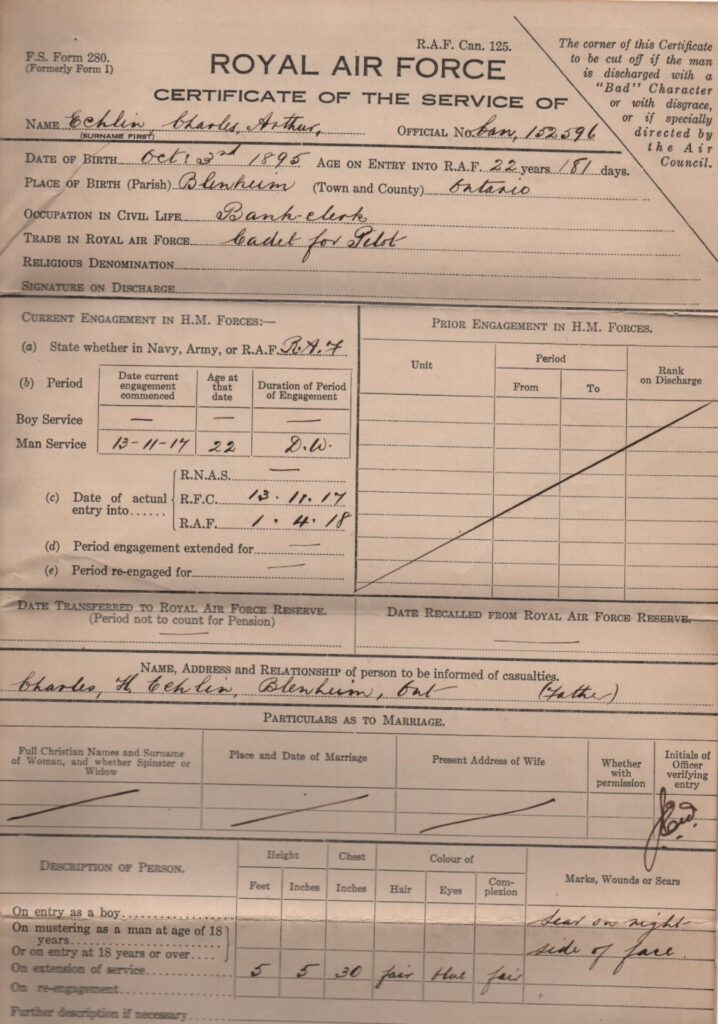 R.A.F. Can. 125.
F.S. Form 280.
(Formerly Form I)
ROYAL AIR FORCE
CERTIFICATE OF THE SERVICE OF
The corner of this Certificate
to be cut off if the man
is discharged with a
"Bad" Character
or with disgrace,
or if specially
directed by
the Air
Council.
NAME Echlin, Charles, Arthur, OFFICIAL No. Can, 152596
(SURNAME FIRST)
DATE OF BIRTH Oct: 3rd 1895 AGE ON ENTRY INTO R.A.F. 22 years 181 days.
PLACE OF BIRTH (Parish) Blenheim (Town and County) Ontario
OCCUPATION IN CIVIL LIFE Bank-clerk
TRADE IN ROYAL AIR FORCE Cadet for Pilot
RELIGIOUS DENOMINATION
SIGNATURE ON DISCHARGE
CURRENT ENGAGEMENT IN H.M. FORCES:—
(a) State whether in Navy, Army, or R.A.F. R.A.F
(b) Period
Date current engagement commenced
Age at that date
Duration of Period of Engagement
Boy Service — — —
Man Service 13-11-17 22 D.W.
(c) Date of actual entry into......
R.N.A.S. —
R.F.C. 13.11.17
R.A.F. 1.4.18
(d) Period engagement extended for —
(e) Period re-engaged for —
PRIOR ENGAGEMENT IN H.M. FORCES.
Unit
Period
From To
Rank on Discharge
DATE TRANSFERRED TO ROYAL AIR FORCE RESERVE.
(Period not to count for Pension)
—
DATE RECALLED FROM ROYAL AIR FORCE RESERVE.
—
NAME, ADDRESS and RELATIONSHIP of person to be informed of casualties.
Charles, H. Echlin, Blenheim, Ont (Father)
PARTICULARS AS TO MARRIAGE.
Full Christian Names and Surname of Woman, and whether Spinster or Widow
Place and Date of Marriage
Present Address of Wife
Whether with permission
Initials of Officer verifying entry
DESCRIPTION OF PERSON.
Height Chest Colour of
Feet Inches Inches Hair Eyes Complexion
Marks, Wounds or Scars
On entry as a boy
On mustering as a man at age of 18 years
Or on entry at 18 years or over....
scar on right
side of face
On extension of service 5 5 30 fair blue fair
On re-engagement
Further description if necessary